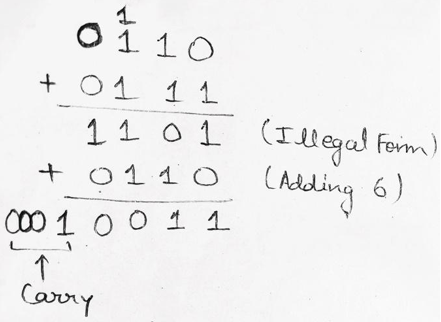 1
0 1 1 0
+ 0 1 1 1
1 1 0 1 (Illegal Form)
+ 0 1 1 0 (Adding 6)
0001 0 0 1 1
Carry